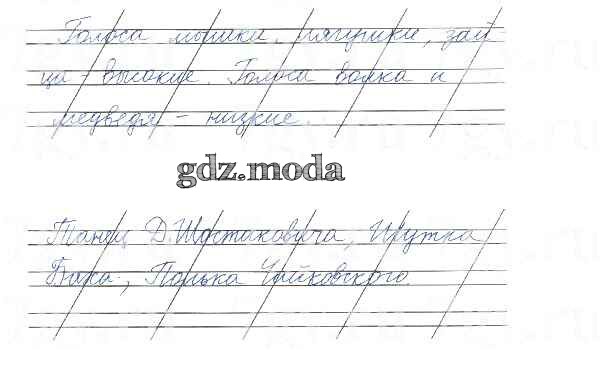 Голоса мышки, лягушки, зай
ца - высокие. Голоса волка и
медведя - низкие.
gdz.moda
Танец Д. Шостаковича, Шутка
Баха, Полька Чайковского.